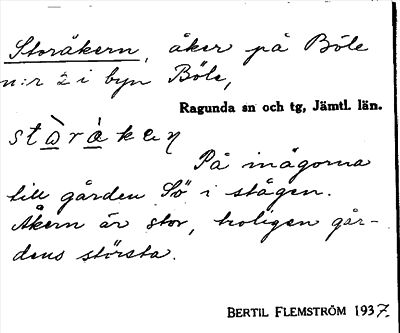 Storåkern, åker på Böle
n:r 2 i byn Böle,
Ragunda sn och tg, Jämtl. län.
På inägorna
till gården Sö i stågen.
Åkern är stor, troligen går-
dens största.
BERTIL FLEMSTRÖM 1937.